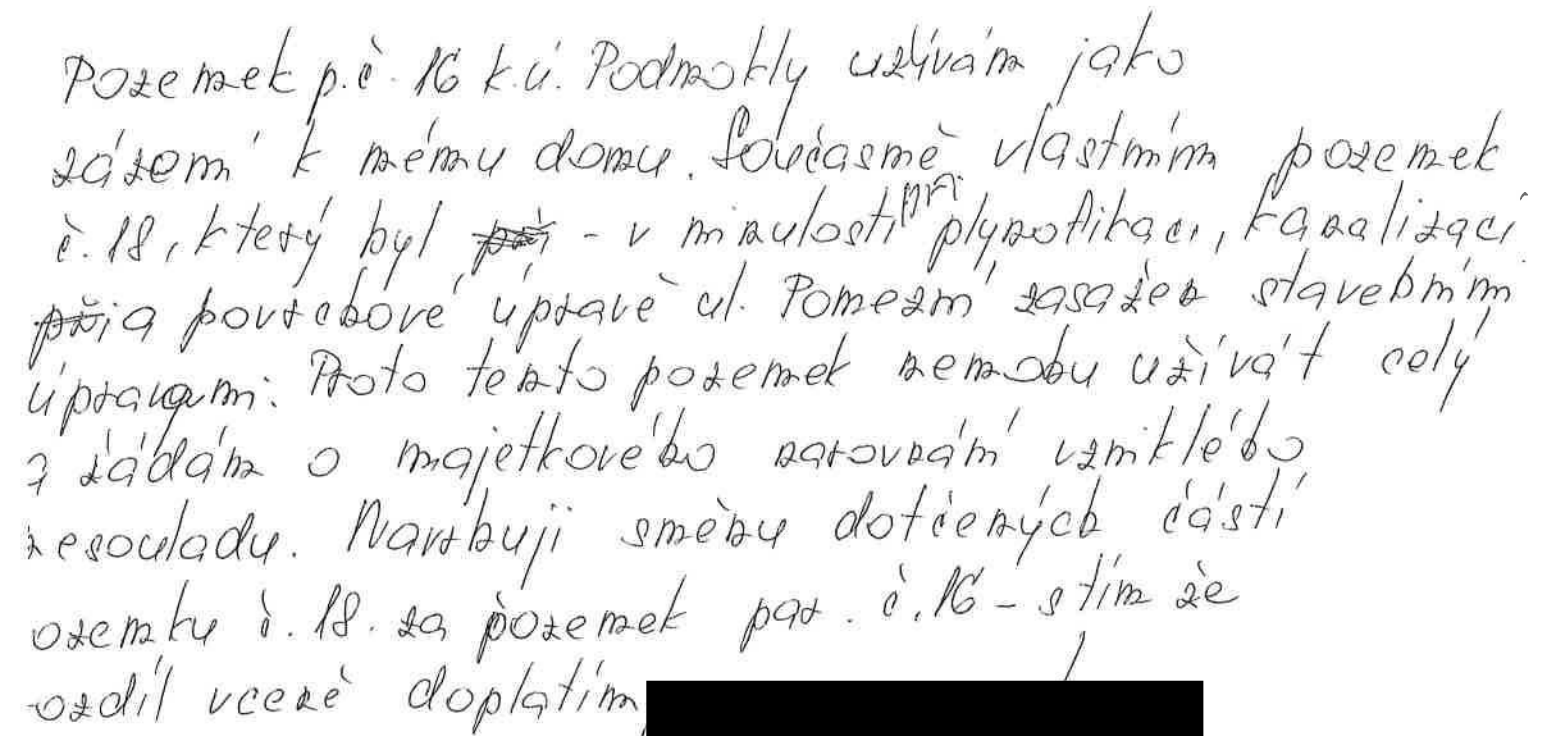 Pozemek p.č. 16 k.ú. Podmokly užívám jako
zázemí k mému domu. Současně vlastním pozemek
č. 18, který byl při - v minulosti při plynofikaci, kanalizaci
při a povrchové úpravě ul. Pomezní zasažen stavebním
úpravami. Proto tento pozemek nemohu užívát celý
a žádám o majetkového narovnání vzniklého
nesouladu. Navrhuji směnu dotčených částí
ozemku č. 18. za pozemek par. č. 16 - s tím že
ozdíl vceně doplatím